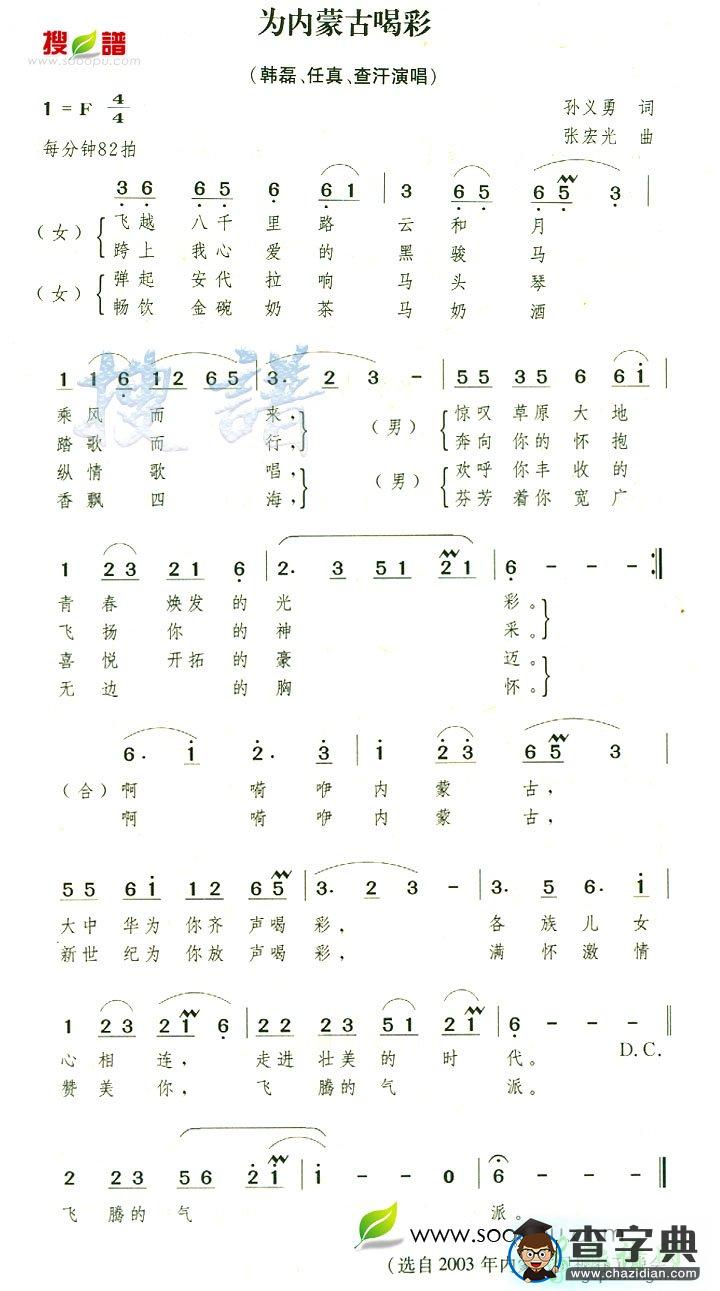 为内蒙古喝彩
搜譜
www.sooopu.com
(韩磊、任真、查汗演唱)
1 = F 4/4
孙义勇 词
每分钟82拍
张宏光 曲
3 6 6 5 6 6 1 | 3 6 6 6 5 3 |
(女) 飞越 八千 里 路 云 和 月
跨上 我心 爱 的 黑 骏 马
(女) 弹起 安代 拉 响 马 头 琴
畅饮 金碗 奶 茶 马 奶 酒
1 1 6 1 2 6 5 | 3· 2 3 - | 5 5 3 5 6 6 i |
乘 风 而 来, (男) 惊叹 草原 大 地
踏 歌 而 行, 奔向 你的 怀 抱
纵 情 歌 唱, (男) 欢呼 你丰 收 的
香 飘 四 海, 芬芳 着你 宽 广
1 2 3 2 1 6 | 2· 3 5 1 2 1 | 6 - - - :‖
青 春 焕发 的 光 彩。
飞 扬 你 的 神 采。
喜 悦 开拓 的 豪 迈。
无 边 的 胸 怀。
6· i 2· 3 | i 2 3 6 5 3 |
(合) 啊 嗬 咿 内 蒙 古,
啊 嗬 咿 内 蒙 古,
5 5 6 i 1 2 6 5 | 3· 2 3 - | 3· 5 6· i |
大中 华为 你齐 声喝 彩, 各 族 儿 女
新世 纪为 你放 声喝 彩, 满 怀 激 情
1 2 3 2 i 6 | 2 2 2 3 5 1 2 i | 6 - - - ‖
心 相 连, 走进 壮美 的 时 代。 D.C.
赞 美 你, 飞 腾的 气 派。
2 2 3 5 6 2 i | i - - 0 | 6 - - - ‖
飞 腾的 气 派。
www.sooopu.com
(选自 2003 年内
查字典
www.chazidian.com